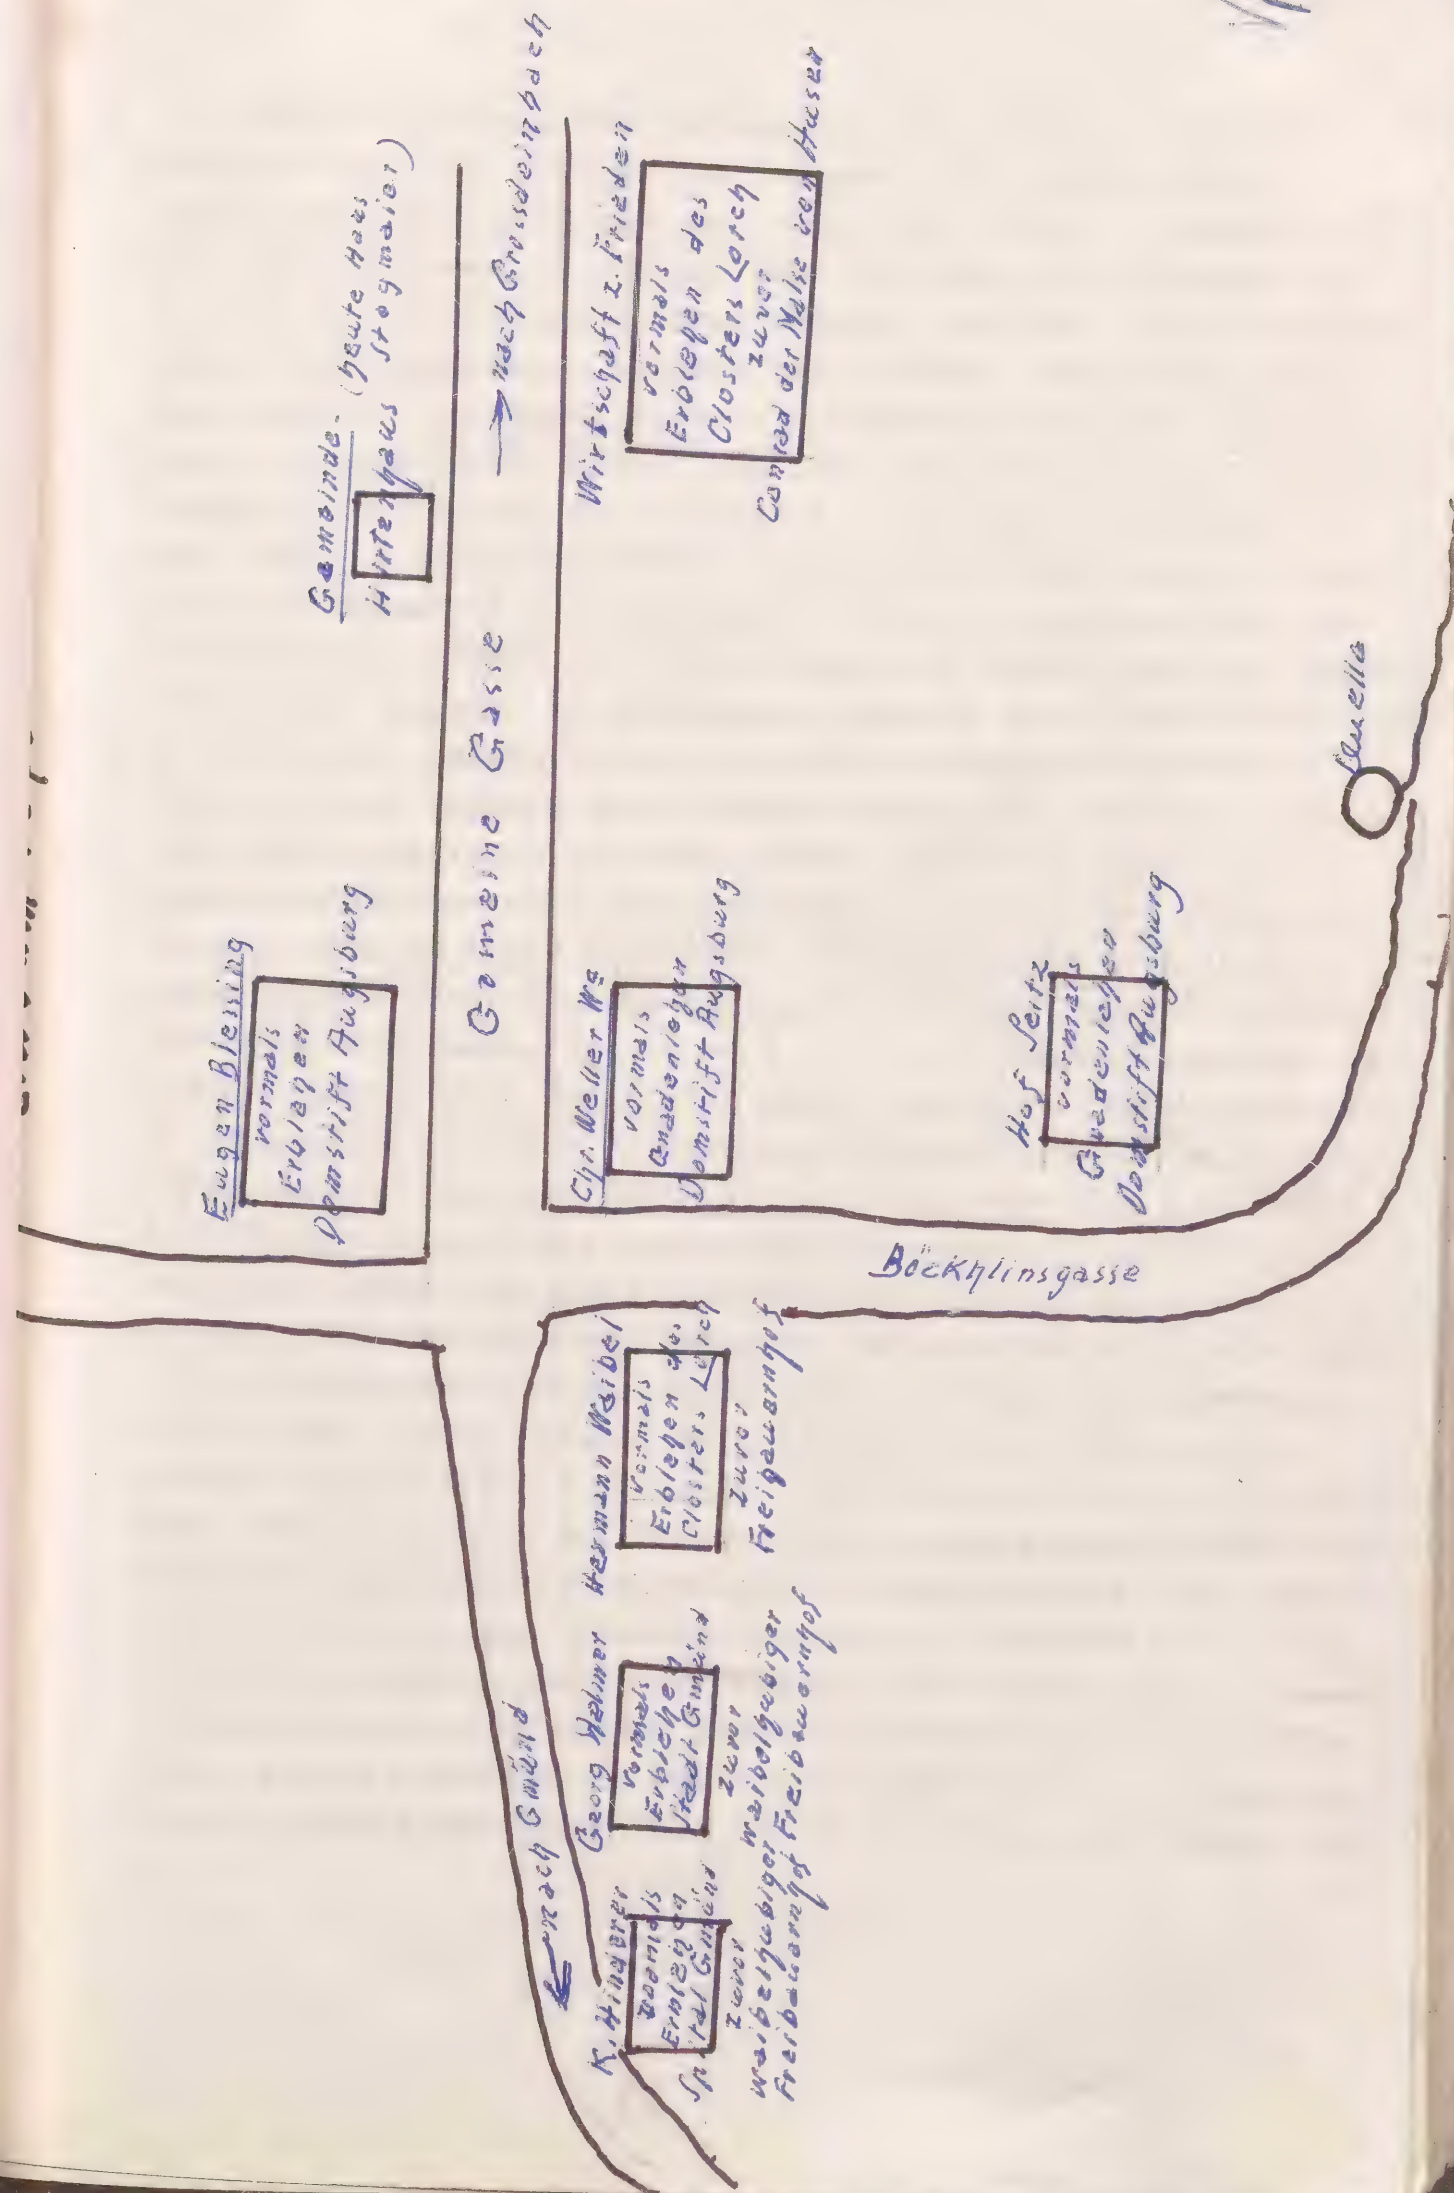 Gemeinde- (heute Haus
Hirtenhaus Stegmaier)
Eugen Blessing
vormals
Erblehen
Domstift Augsburg
Gemeine Gasse
→ nach Grossdeinbach
Wirtschaft z. Frieden
vormals
Erblehen des
Closters Lorch
zuvor
Conrad der Malse von Husen
Chr. Weller We
vormals
Gnadenlehen
Domstift Augsburg
Hof Seitz
vormals
Gnadenlehen
Domstift Augsburg
Quelle
Böckhlinsgasse
← nach Gmünd
Hermann Weibel
vormals
Erblehen des
Closters Lorch
zuvor
Freibauernhof
Georg
vormals
Erblehen
Stadt Gmünd
zuvor
waibelhubiger
Freibauernhof
K. Hinderer
vormals
Erblehen
Spital Gmünd
zuvor
waibelhubiger
Freibauernhof